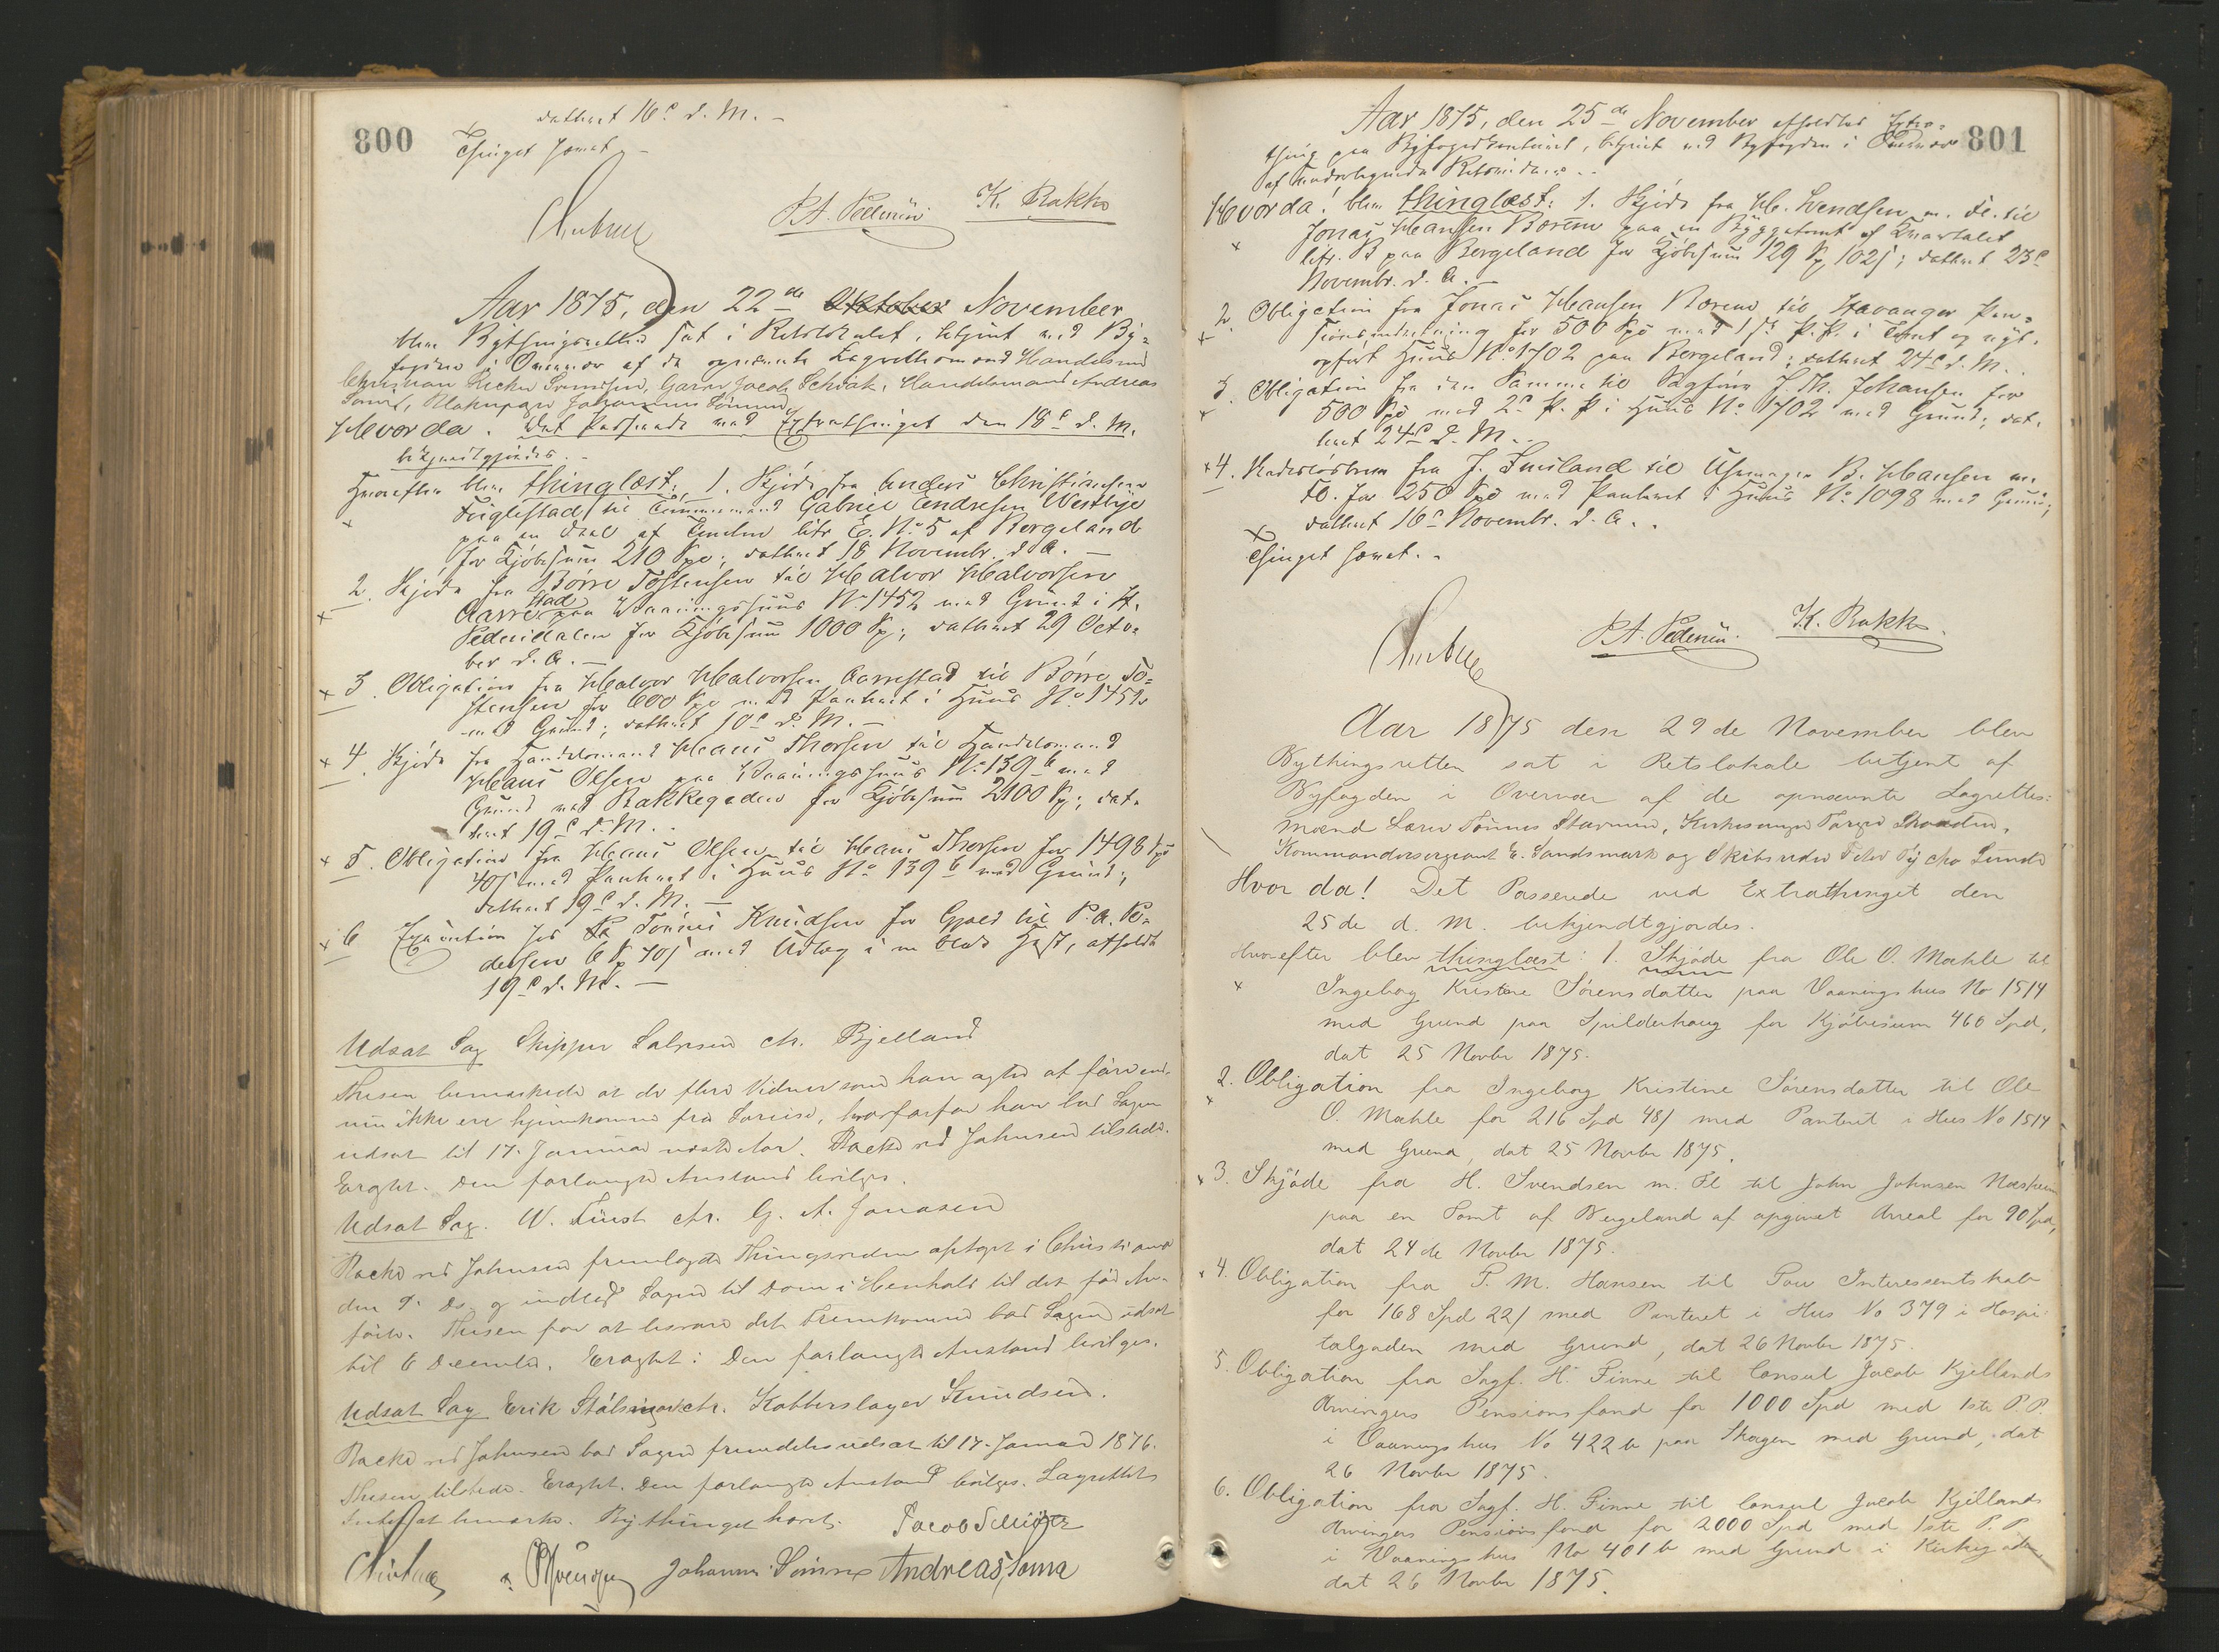 800
datheret 16de d. M. –
Thinget hævet. –
P. A. Pedersen K. Rakke
Aar 1875, den 22de Oktober November
blev Bythingsretten sat i Retslokalet, betjent ved By-
fogden i Overvær af de opnævnte Lagrettemænd Handelsmd
Christian Svendsen, Garver Jacob Schiøtz, Handelsmand Andreas
Soma, Johannes
Hvor da: Det Passerede ved Extrathinget den 18de d. M.
bekjendtgjordes. –
Hvorefter blev thinglæst: 1. Skjøde fra Anders Christiansen
Fuglestad til Tømmermand Gabriel Endresen Westbye
paa en Deel af Tomten litr. E. No 5 af Bergeland
for Kjøbesum 210 Spd; datheret 18 Novembr. d. A. –
2. Skjøde fra Børre Tostensen til Halvor Halvorsen
Aarrestad paa Vaaningshuus No 1452 med Grund i St.
Pedersdalen for Kjøbesum 1000 Sp; datheret 29 Octo-
ber d. A. –
3. Obligation fra Halvor Halvorsen Aarrestad til Børre To-
stensen for 600 Spd med Panteret i Huus No 1452
med Grund; datheret 10de d. M. –
4. Skjøde fra Handelsmand Hans Thorsen til Handelsmand
Hans Olsen paa Vaaningshuus No 139b med
Grund ved Bakkegaden for Kjøbesum 2100 Sp; dat-
heret 19de d. M. –
5. Obligation fra Hans Olsen til Hans Thorsen for 1498 Spd
40 s med Panteret i Huus No 139b med Grund;
datheret 19de d. M. –
6 Execution hos Tønnes Knudsen for Gjæld til P. A. Pe-
dersen 6 Sp 70 s med Udlæg i en Hest, afholdt
19de d. M. –
Udsat Sag Skipper Salvesen ctr. Bjelland
Thesen bemærkede at de flere Vidner som han agted at føre end-
nu ikke ere hjemkomne fra Søreise, hvorfor han bad Sagen
udsat til 17. Januar næste Aar. Racke ved Johnsen tilstede.
Eragtet. Den forlangte Anstand bevilges.
Udsat Sag. W. Fürst ctr. G. A. Jonasen
Racke ved Johnsen fremlagde Thingsvidne optaget i Christiansand
den 9. Ds. og indlod Sagen til Dom i Henhold til det før An-
førte. Thesen for at besvare det Fremkomne bad Sagen udsat
til 6 Decembr. Eragtet: Den forlangte Anstand bevilges.
Udsat Sag Erik ctr. Kobberslager Knudsen.
Racke ved Johnsen bad Sagen fremdeles udsat til 17. Januar 1876.
Thesen tilstede. Eragtet. Den forlangte Anstand bevilges. Lagrettet
Intet at bemærke. Bythinget hævet. Jacob Schiøtz
Johannes Andreas Soma
801
Aar 1875, den 25de November afholdtes Extra-
thing paa Byfogedkontoret, betjent ved Byfogden i Overvær
af undertegnede Retsvidner. –
Hvorda! blev thinglæst: 1. Skjøde fra H. Svendsen m. Fl. til
Jonas Hansen Borene paa en Byggetomt af Kvartalet
litr. B paa Bergeland for Kjøbesum 129 Sp 102 s; datheret 23de
Novembr. d. A. –
2. Obligation fra Jonas Hansen Borene til Stavanger Pen-
sionsindretning for 500 Spd med 1ste P. P. i Tomt og nyt-
opført Huus No 1702 paa Bergeland; datheret 24de d. M. –
3. Obligation fra den Samme til Sagfører J. Th. Johansen for
500 Spd med 2de P. P. i Huus No 1702 med Grund; dat-
heret 24de d. M. –
4. fra J. Smsland til Uhrmager B. Hansen m.
Fl. for 250 Spd med Panteret i Huus No 1098 med Grund;
datheret 16de Novembr. d. A. –
Thinget hævet. –
P. A. Pedersen. K. Rakke.
Aar 1875 den 29de November blev
Bythingsretten sat i Retslokale betjent af
Byfogden i Overvær af de opnævnte Lagrettes-
mænd Lærer Tønnes Stavnem, Kirkesanger Torger
Kommandersergeant E. Sandsmark og Skibsreder Peder Tycho Lunde
Hvor da! Det Passerede ved Extrathinget den
25de d. M. bekjendtgjordes.
Hvorefter blev thinglæst: 1. Skjøde fra Ole O. Mæhle til
Ingeborg Kristine Sørensdatter paa Vaaningshus No 1514
med Grund paa Spilderhaug for Kjøbesum 460 Spd,
dat 25 Novbr 1875.
2. Obligation fra Ingeborg Kristine Sørensdatter til Ole
O. Mæhle for 216 Spd 48 s med Panteret i Hus No 1514
med Grund, dat 25 Novbr 1875.
3. Skjøde fra H. Svendsen m. Fl til John Johnsen Næsheim
paa en Tomt af Bergeland af opgivet Areal for 90 Spd,
dat 24de Novbr 1875.
4. Obligation fra T. M. Hansen til Tou Interessentskab
for 168 Spd 22 s med Panteret i Hus No 379 i Hospi-
talgaden med Grund, dat 26 Novbr 1875.
5. Obligation fra Sagf. H. Finne til Consul Jacob Kjellands
Arvingers Pensionsfond for 1000 Spd med 1ste P. P.
i Vaaningshus No 422b paa Skagen med Grund, dat
26 Novbr 1875.
6. Obligation fra Sagf. H. Finne til Consul Jacob Kjellands
Arvingers Pensionsfond for 2000 Spd med 1ste P. P
i Vaaningshus No 401b med Grund i Kirkegaden
dat 26 Novbr 1875.